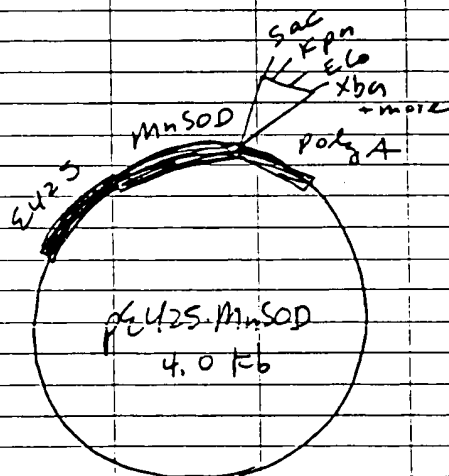 Sac
Kpn
Eco
Xba
+ more
MnSOD
poly A
ξ425
pξ425.MnSOD
4.0 Kb